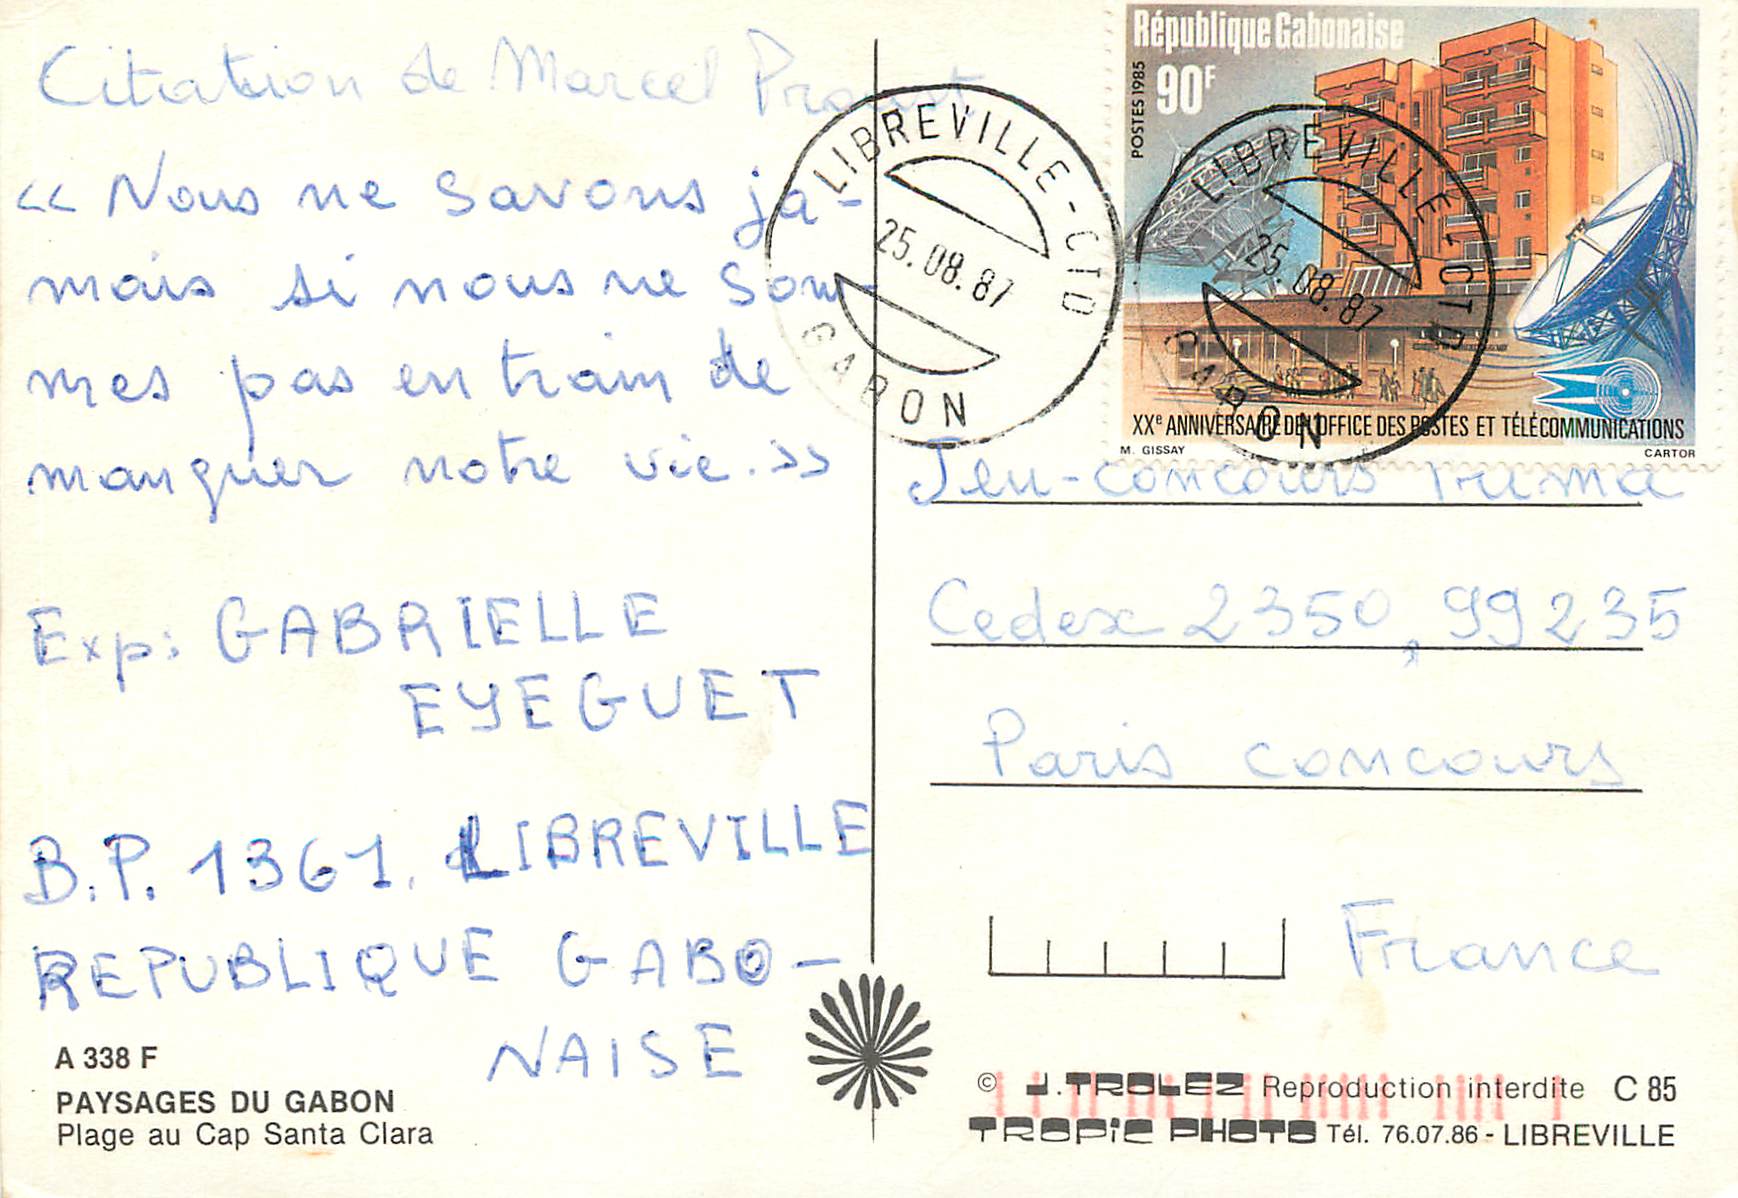 Citation de Marcel Proust
<< Nous ne savons ja-
mais si nous ne som-
mes pas en train de
manquer notre vie. >>
Exp: GABRIELLE
EYEGUET
B.P. 1361, LIBREVILLE
REPUBLIQUE GABO-
NAISE
A 338 F
PAYSAGES DU GABON
Plage au Cap Santa Clara
LIBREVILLE-CTD
25.08.87
GABON
République Gabonaise
90F
POSTES 1985
LIBREVILLE-CTD
25.08.87
GABON
XXe ANNIVERSAIRE DE L'OFFICE DES POSTES ET TÉLÉCOMMUNICATIONS
M. GISSAY
CARTOR
Jeu-concours Prima
Cedex 2350, 99235
Paris concours
France
© J. TROLEZ Reproduction interdite C 85
TROPIC PHOTO Tél. 76.07.86 - LIBREVILLE